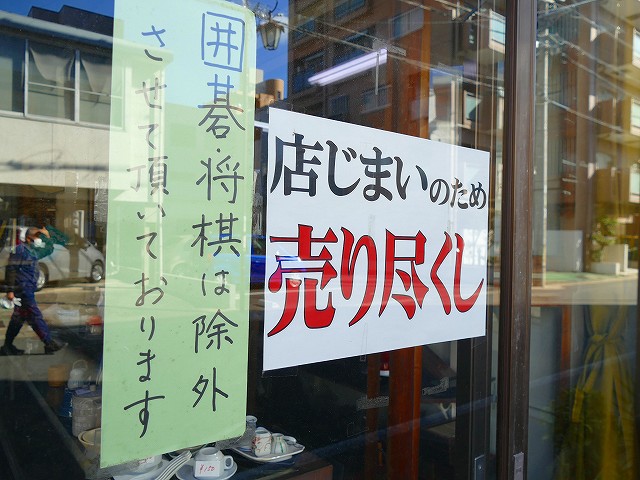 囲碁・将棋は除外
させて頂いております
店じまいのため
売り尽くし